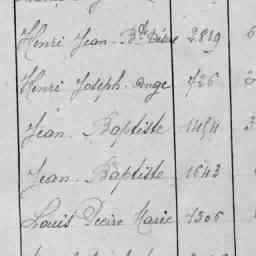 Henri Jean-Bte 2819
Henri Joseph Ange 726
Jean-Baptiste 1484
Jean-Baptiste 1643
Louis Pierre Marie 1306